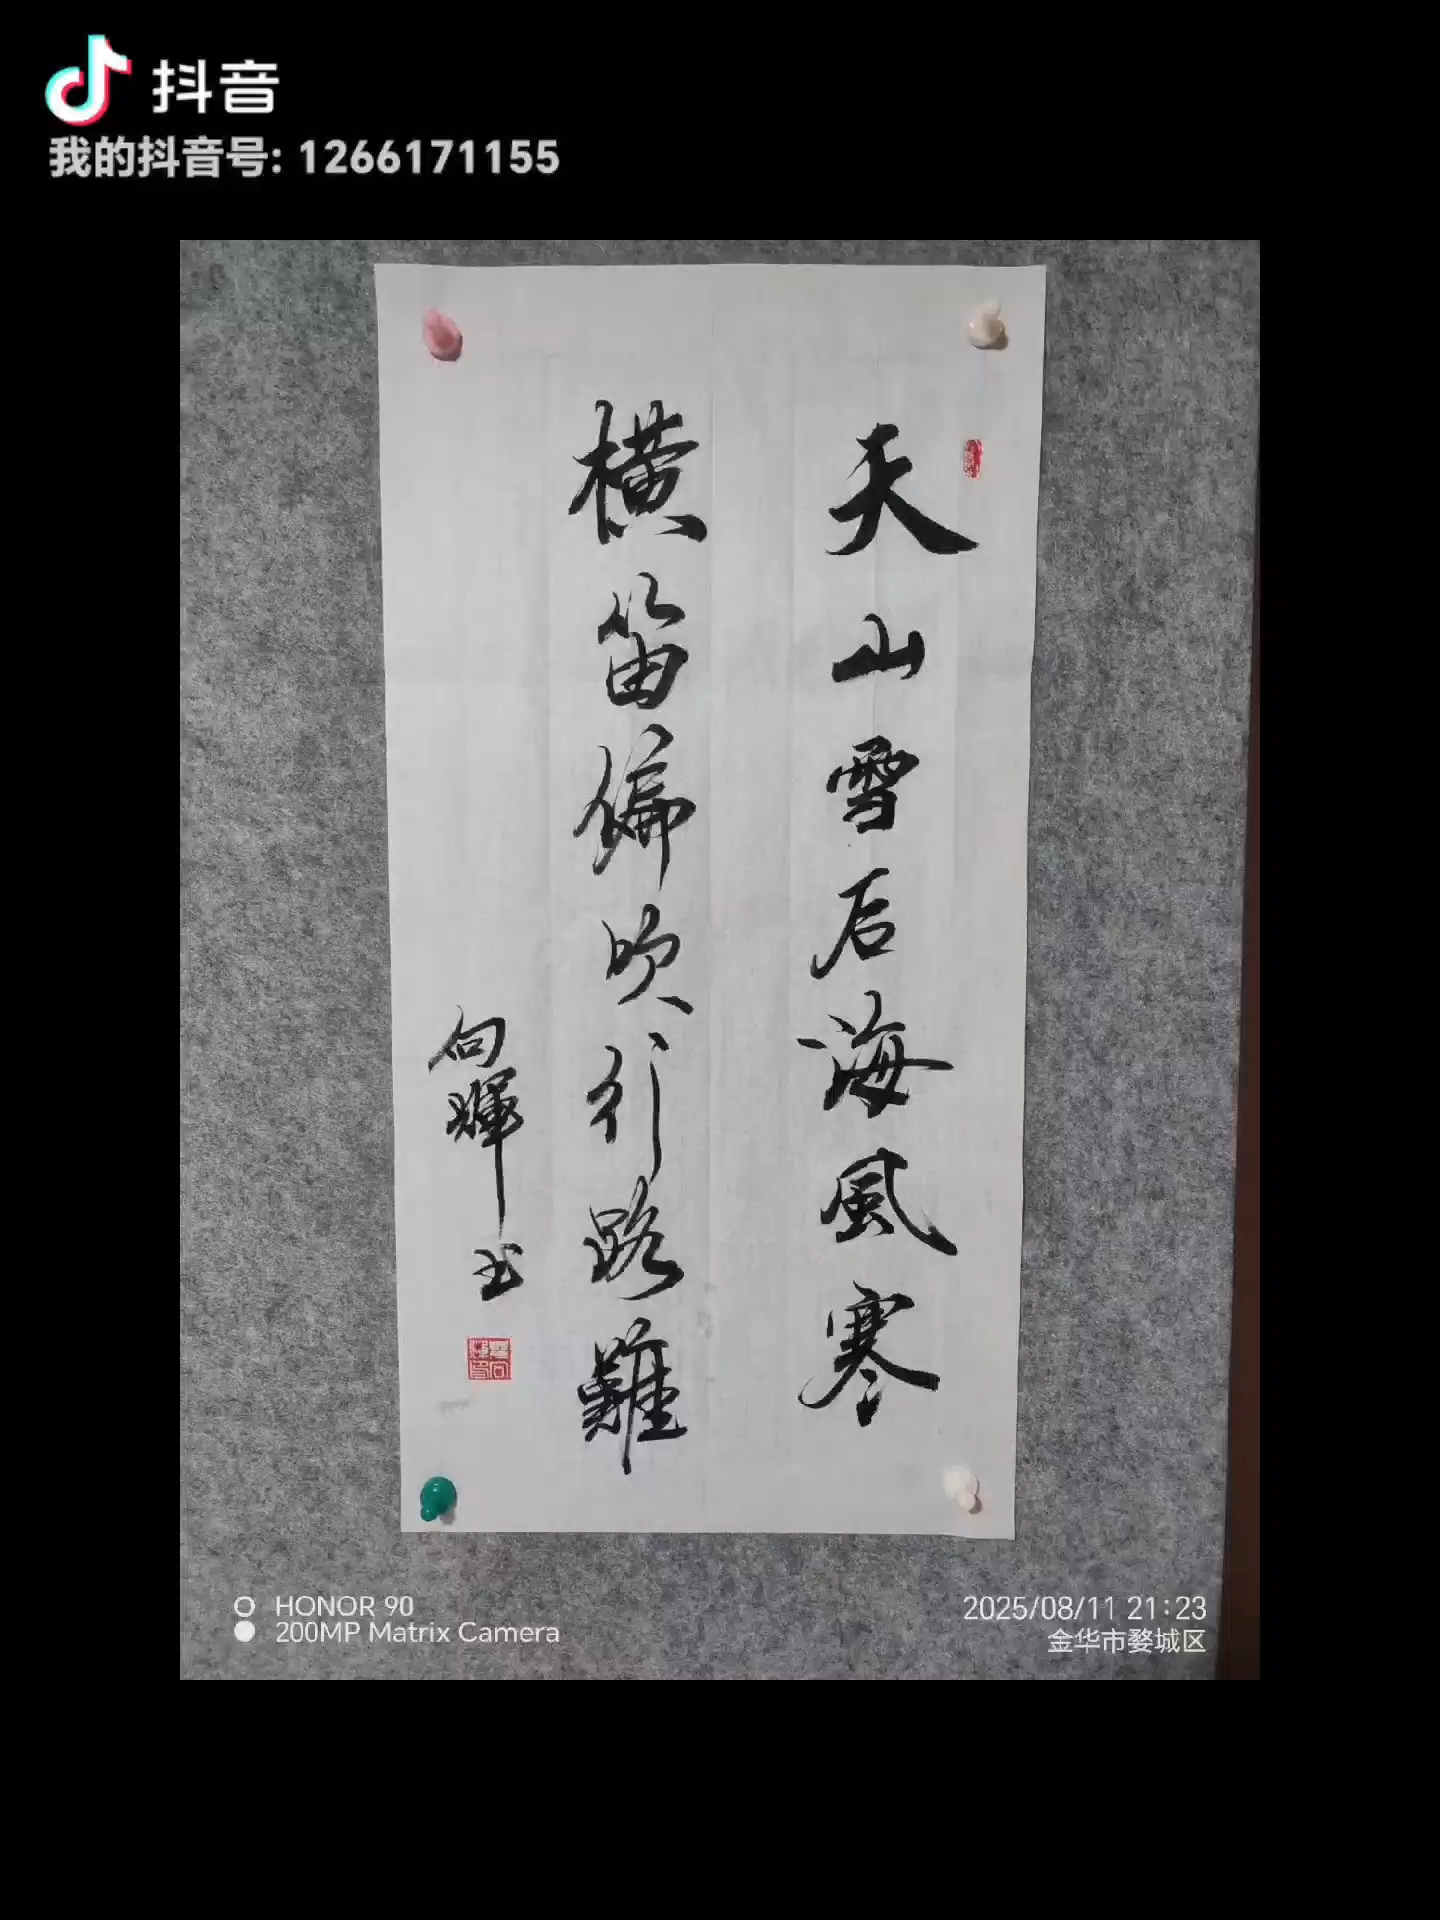 抖音
我的抖音号: 1266171155
天山雪后海風寒
横笛偏吹行路難
向輝书
HONOR 90
200MP Matrix Camera
2025/08/11 21:23
金华市婺城区